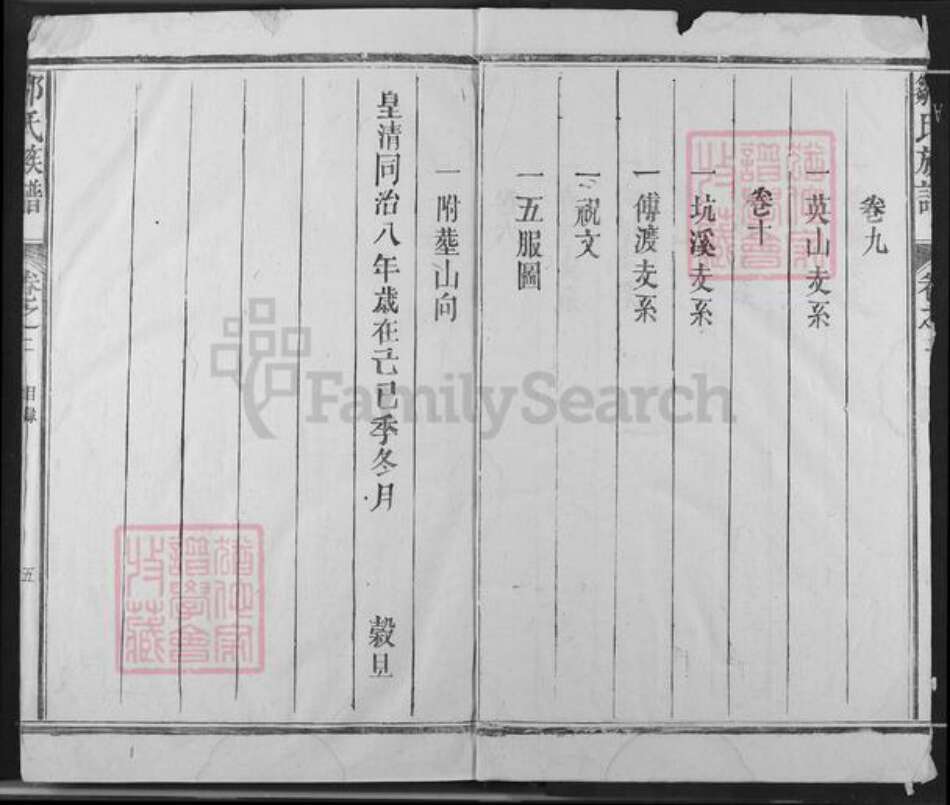 鄒氏族譜
卷之一
卷九
一英山支系
卷十
一坑溪支系
一傅渡支系
一祝文
一五服圖
一附塟山向
皇清同治八年歲在己巳季冬月 穀旦
鄒氏族譜
卷之一
目錄
五
FamilySearch